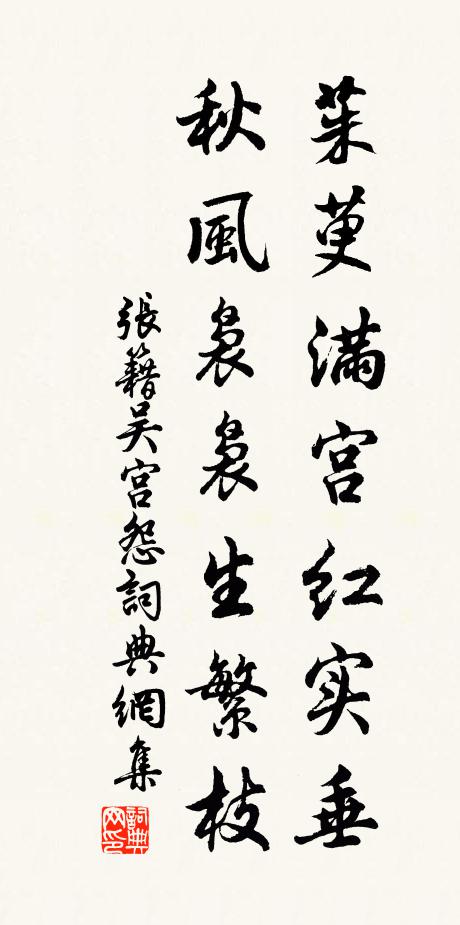 茱萸满宫红实垂
秋風袅袅生繁枝
張籍吴宫怨詞典網集
詞典网印